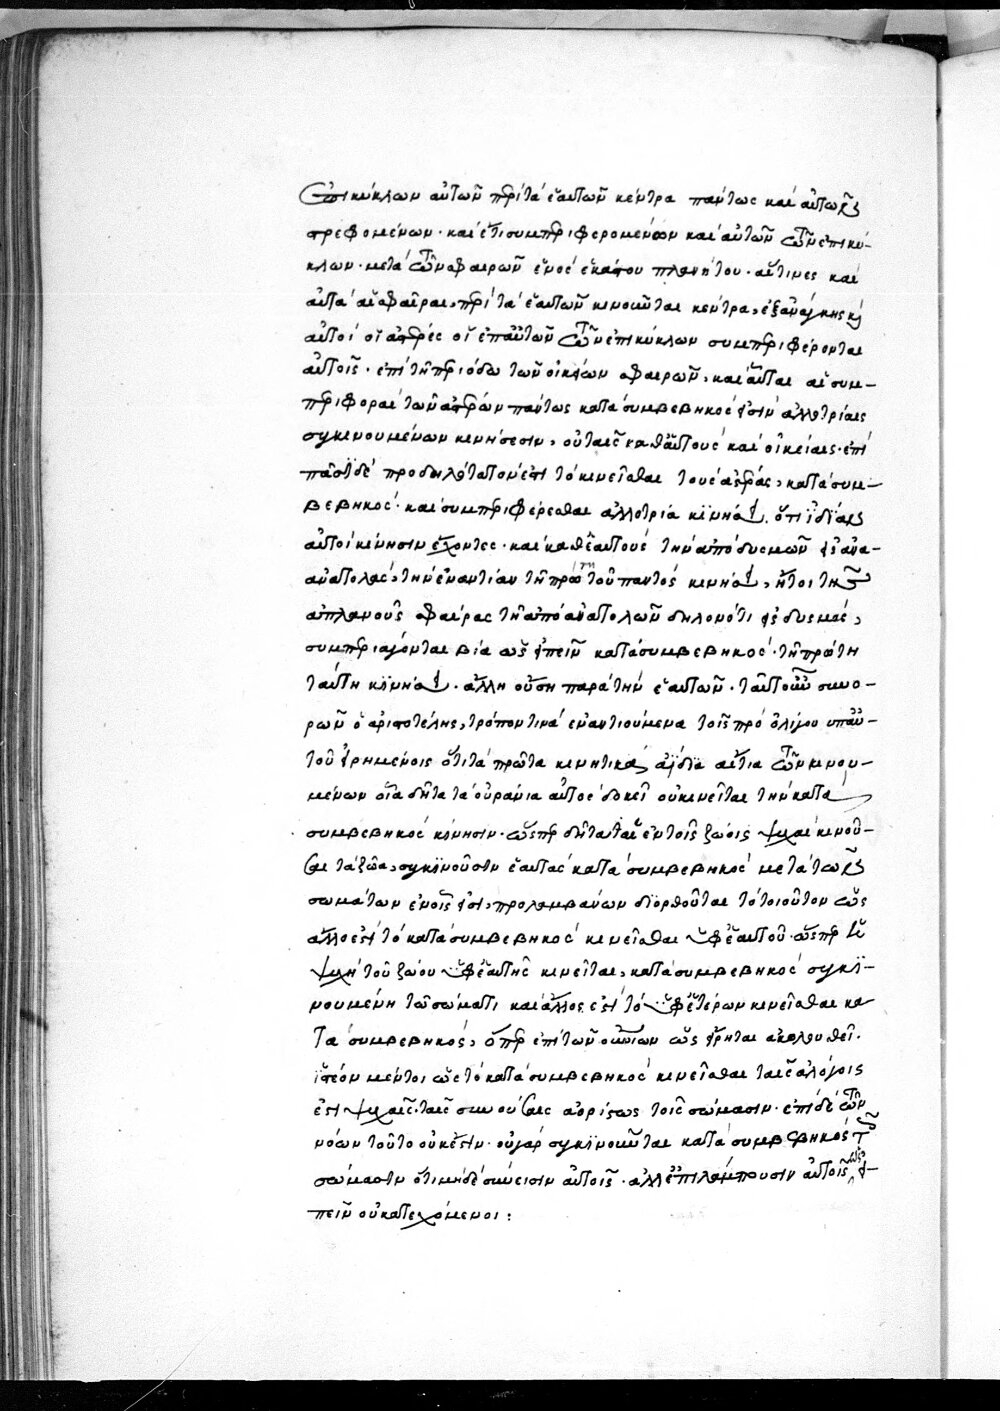 ἐπικύκλων αὐτῶν περὶ τὰ ἑαυτῶν κέντρα πάντως καὶ αὐτῶν
στρεφομένων· καὶ ἔτι συμπεριφερομένων καὶ αὐτῶν τῶν ἐπικύ-
κλων· μετὰ τῶν σφαιρῶν ἑνὸς ἑκάστου πλανήτου· αἵτινες καὶ
αὐταὶ αἱ σφαῖραι, περὶ τὰ ἑαυτῶν κινοῦνται κέντρα, ἐξανάγκης καὶ
αὐτοὶ οἱ ἀστέρες οἱ ἐπαὐτῶν τῶν ἐπικύκλων συμπεριφέρονται
αὐτοῖς· ἐπὶ τῇ περιόδω τῶν οἰκείων σφαιρῶν, καὶ αὗται αἱ συμ-
περιφοραὶ τῶν ἀστέρων πάντως κατὰ συμβεβηκός εἰσιν ἀλλοτρίαις
συγκινουμένων κινήσεσιν, οὐ ταῖς καθαὑτοὺς καὶ οἰκείαις· ἐπὶ
πᾶσι δὲ προδηλότατον ἐστὶ τὸ κινεῖσθαι τοὺς ἀστέρας, κατὰ συμ-
βεβηκός· καὶ συμπεριφέρεσθαι ἀλλοτρία κινήσει. ὅτι ἰδίαν
αὐτοὶ κίνησιν ἔχοντες· καὶ καθἑαυτοὺς τὴν ἀπὸ δυσμῶν εἰς ἀνα-
ἀνατολὰς, τὴν ἐναντίαν τῆ πρώτη τοῦ παντὸς κινήσει, ἤτοι τῆς
ἀπλανοῦς σφαίρας τῆ ἀπὸ ἀνατολῶν δηλονότι εἰς δυσμάς,
συμπεριάγονται βία ὡς εἰπεῖν κατὰ συμβεβηκός· τῆ πρώτη
ταύτη κινήσει· ἄλλη οὔση παρὰ τὴν ἑαυτῶν· ταῦτ οὖν συνο-
ρῶν ὁ ἀριστοτέλης, τρόπον τινὰ ἐναντιούμενα τοῖς πρὸ ὀλίγου ὑπαὐ-
τοῦ εἰρημένοις ὅτι τὰ πρῶτα κινητικὰ ἀΐδια αἴτια τῶν κινου-
μένων οἷα δῆτα τὰ οὐράνια αὐτὸς δοκεῖ οὐ κινεῖται τὴν κατὰ
συμβεβηκὸς κίνησιν· ὥσπερ δῆτα αἱ ἐν τοῖς ζώοις ψυχαὶ κινοῦ-
σαι τὰ ζῶα, συγκινοῦσιν ἑαυτὰς κατὰ συμβεβηκὸς μετὰ τῶν
σωμάτων ἐν οἷς εἰσι, προλαμβάνων διορθοῦται τὸ τοιοῦτον ὡς
ἄλλο ἐστὶ τὸ κατὰ συμβεβηκὸς κινεῖσθαι ὑφἑαυτοῦ· ὥσπερ ἡ
ψυχὴ τοῦ ζώου ὑφἑαυτῆς κινεῖται, κατὰ συμβεβηκὸς συγκι-
νουμένη τῶ σώματι καὶ ἄλλο ἐστὶ τὸ ὑφἑτέρων κινεῖσθαι κα
τὰ συμβεβηκός, ὅπερ ἐπὶ τῶν οὐρανίων ὡς εἴρηται ἀκολουθεῖ.
ἰστέον μέντοι ὡς τὸ κατὰ συμβεβηκὸς κινεῖσθαι ταῖς ἀλόγοις
ἐστὶ ψυχαῖς· ταῖς συνούσαις ἀορίστως τοῖς σώμασιν· ἐπὶ δὲ τῶν
νόων τοῦτο οὐκ ἔστιν· οὐ γὰρ συγκινοῦνται κατὰ συμβεβηκὸς τοῖς
σώμασιν ὅτι μηδὲ σύνεισιν αὐτοῖς· ἀλλἐπιλάμπουσιν αὐτοῖς ὡς εἰ-
πεῖν οὐ κατεχόμενοι: